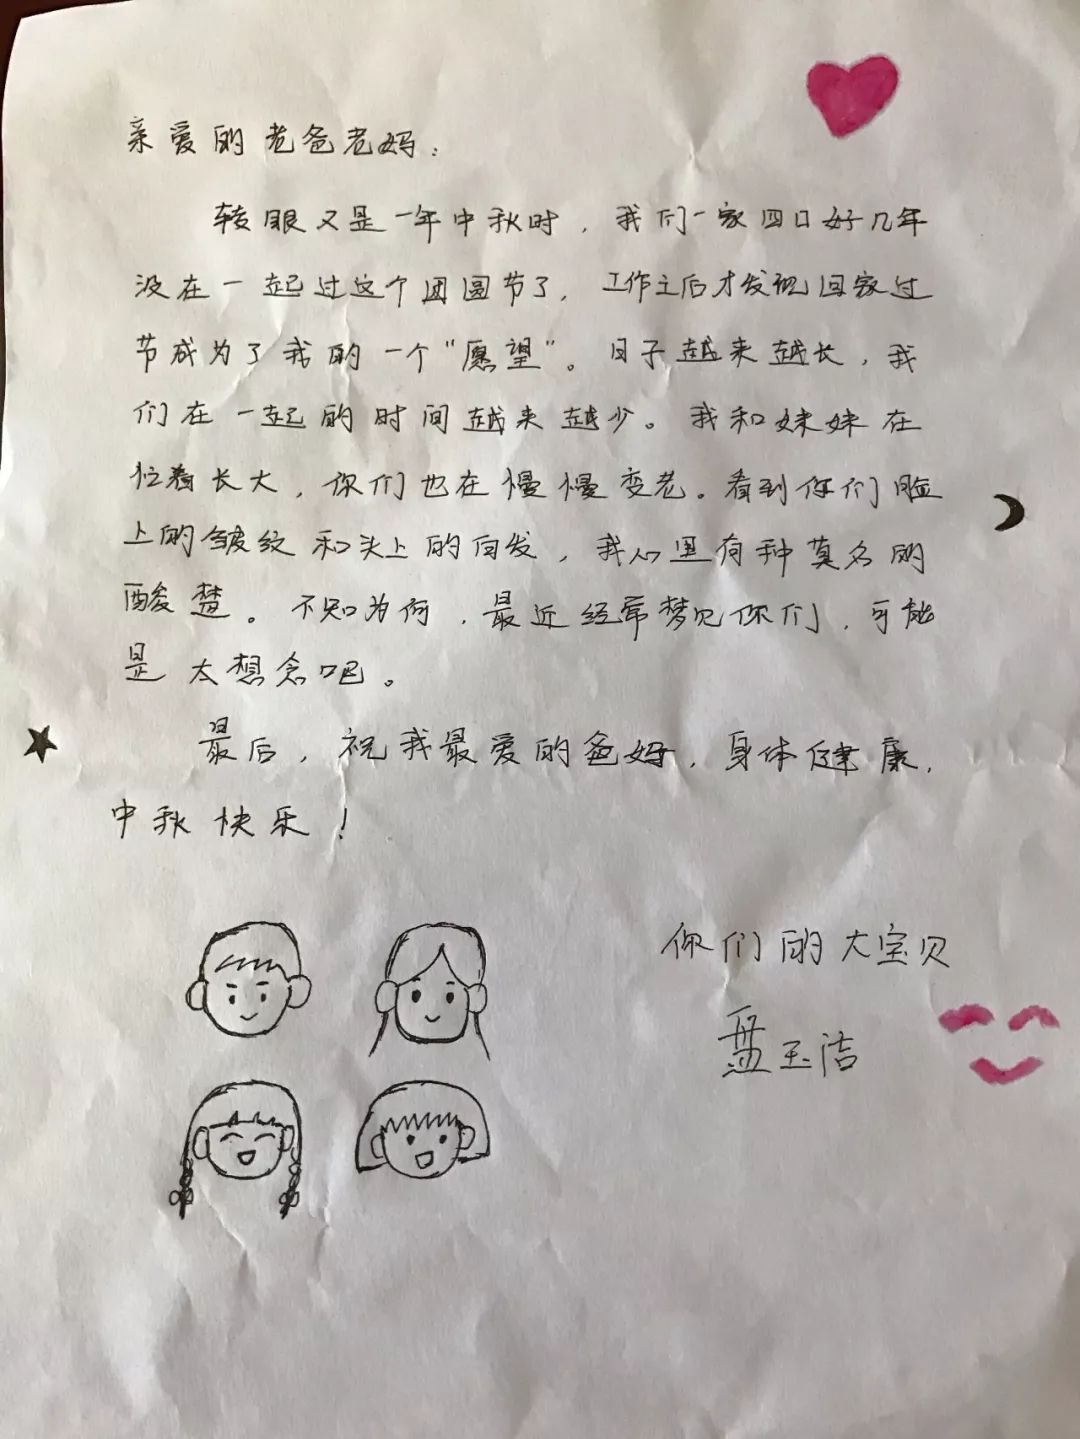 亲爱的老爸老妈：
转眼又是一年中秋时，我们一家四口好几年
没在一起过这个团圆节了，工作之后才发现回家过
节成为了我的一个“愿望”。日子越来越长，我
们在一起的时间越来越少。我和妹妹在
忙着长大，你们也在慢慢变老。看到你们脸
上的皱纹和头上的白发，我心里有种莫名的
酸楚。不知为何，最近经常梦见你们，可能
是太想念吧。
最后，祝我最爱的爸妈，身体健康，
中秋快乐！
你们的大宝贝
盘玉洁